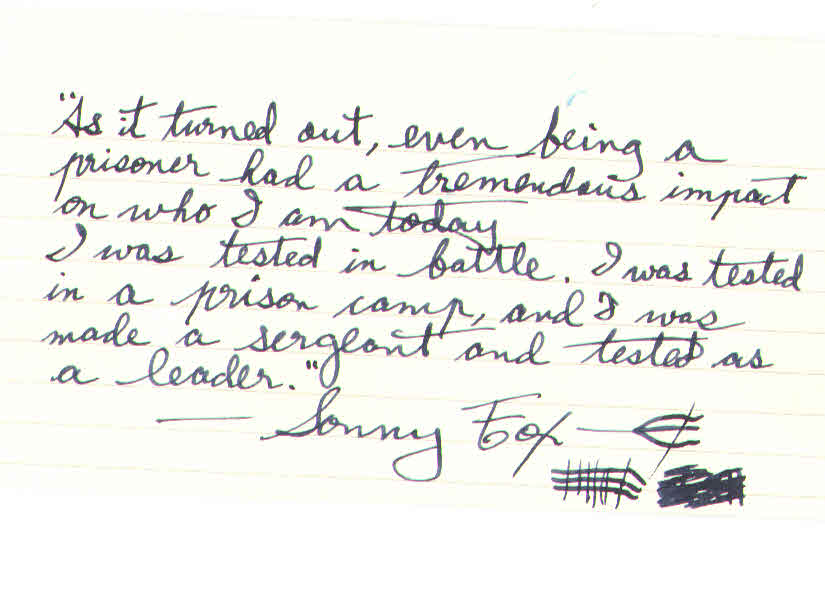 "As it turned out, even being a
prisoner had a tremendous impact
on who I am today
I was tested in battle. I was tested
in a prison camp, and I was
made a sergeant and tested as
a leader."
— Sonny Fox